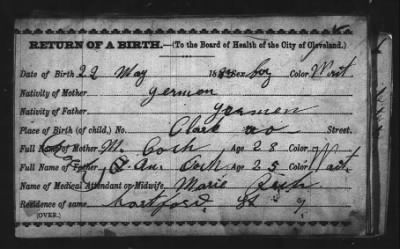 RETURN OF A BIRTH.—(To the Board of Health of the City of Cleveland.)
Date of Birth 22 May 188 Sex boy Color Wait
Nativity of Mother german
Nativity of Father german
Place of Birth (of child.) No. Clark av Street.
Full Name of Mother M. Coch Age 28 Color
Full Name of Father Age 25
Name of Medical Attendant or Midwife, Marie
Residence of same hartford St
(OVER.)